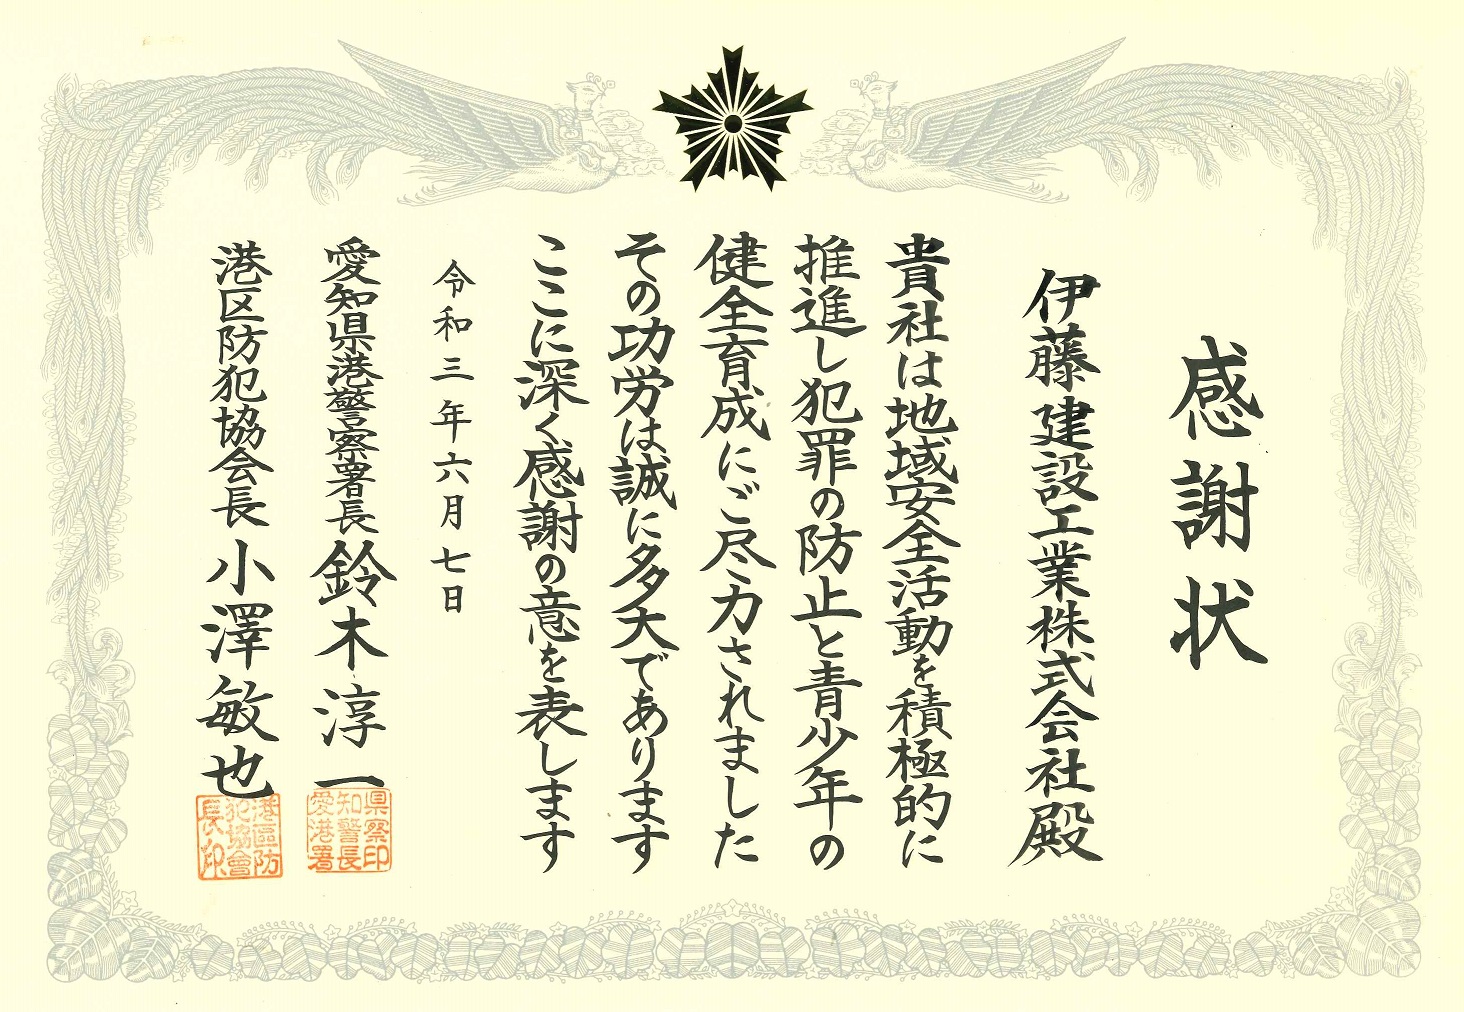 感謝状
伊藤建設工業株式会社殿
貴社は地域安全活動を積極的に
推進し犯罪の防止と青少年の
健全育成にご尽力されました
その功労は誠に多大であります
ここに深く感謝の意を表します
令和三年六月七日
愛知県港警察署長 鈴木淳一
港区防犯協会長 小澤敏也
県察印
知警長
愛港署
港區防
犯協會
長印